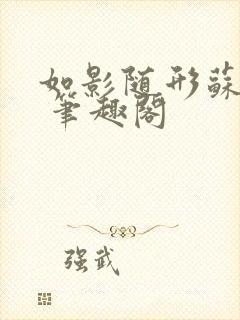 如影随形蘇
笔趣阁
强武